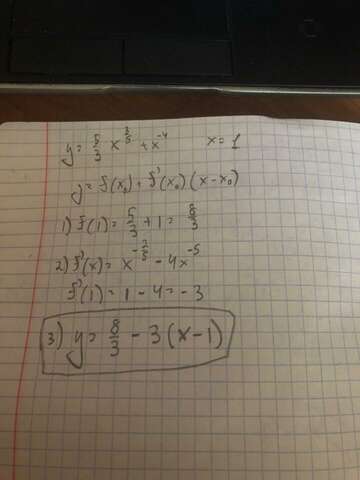 y = 5/3 x^(3/5) + x^(-4) x = 1
y = f(x₀) + f'(x₀)(x - x₀)
1) f(1) = 5/3 + 1 = 8/3
2) f'(x) = x^(-2/5) - 4x^(-5)
f'(1) = 1 - 4 = -3
3) y = 8/3 - 3(x - 1)